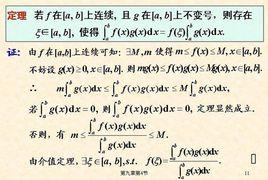 定理 若 f 在[a, b]上连续, 且 g 在[a, b]上不变号, 则存在
ξ∈[a, b], 使得 ∫_a^b f(x)g(x)dx = f(ξ)∫_a^b g(x)dx.
证: 由 f 在[a, b]上连续可知: ∃M, m 使得 m ≤ f(x) ≤ M, x∈[a, b].
不妨设 g(x) ≥ 0, x∈[a, b]. 则 mg(x) ≤ f(x)g(x) ≤ Mg(x), x∈[a, b]
∴ m∫_a^b g(x)dx ≤ ∫_a^b f(x)g(x)dx ≤ M∫_a^b g(x)dx,
若 ∫_a^b g(x)dx = 0, 则 ∫_a^b f(x)g(x)dx = 0, 定理显然成立.
否则, 有 m ≤ ∫_a^b f(x)g(x)dx / ∫_a^b g(x)dx ≤ M.
由介值定理, ∃ξ∈[a, b], s.t. f(ξ) = ∫_a^b f(x)g(x)dx / ∫_a^b g(x)dx.
第九章第4节 11